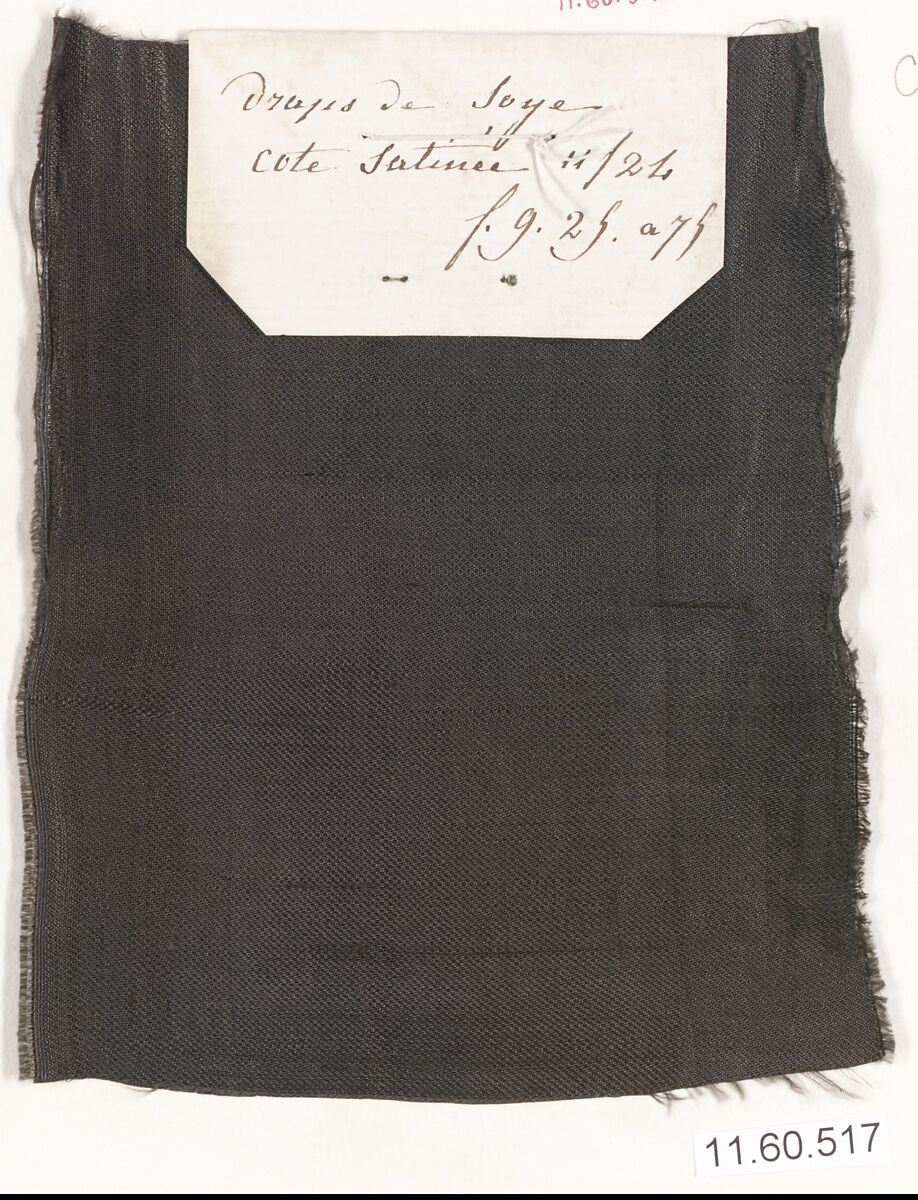 Draps de Soye
cote Satinée 11/24
f. 9. 25. a 75
11.60.517